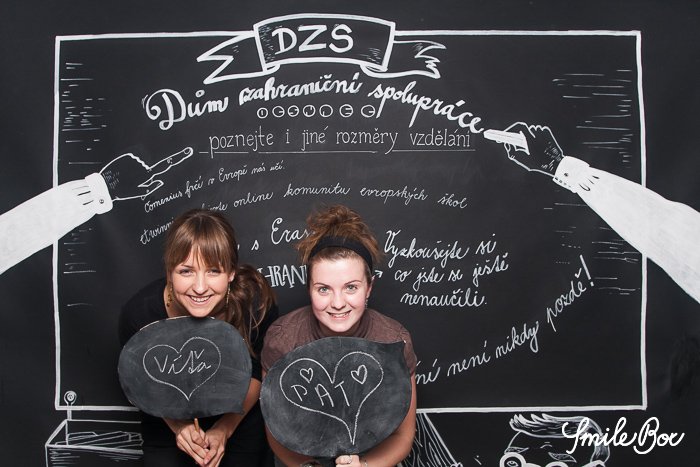 DZS
Dům zahraniční spolupráce
poznejte i jiné rozměry vzdělání
Comenius frčí v Evropě nás učí.
online komunitu evropských škol
s Eras
Vyzkoušejte si
co jste se ještě
nenaučili.
není nikdy pozdě!
Víťa
PAT
Smile Box